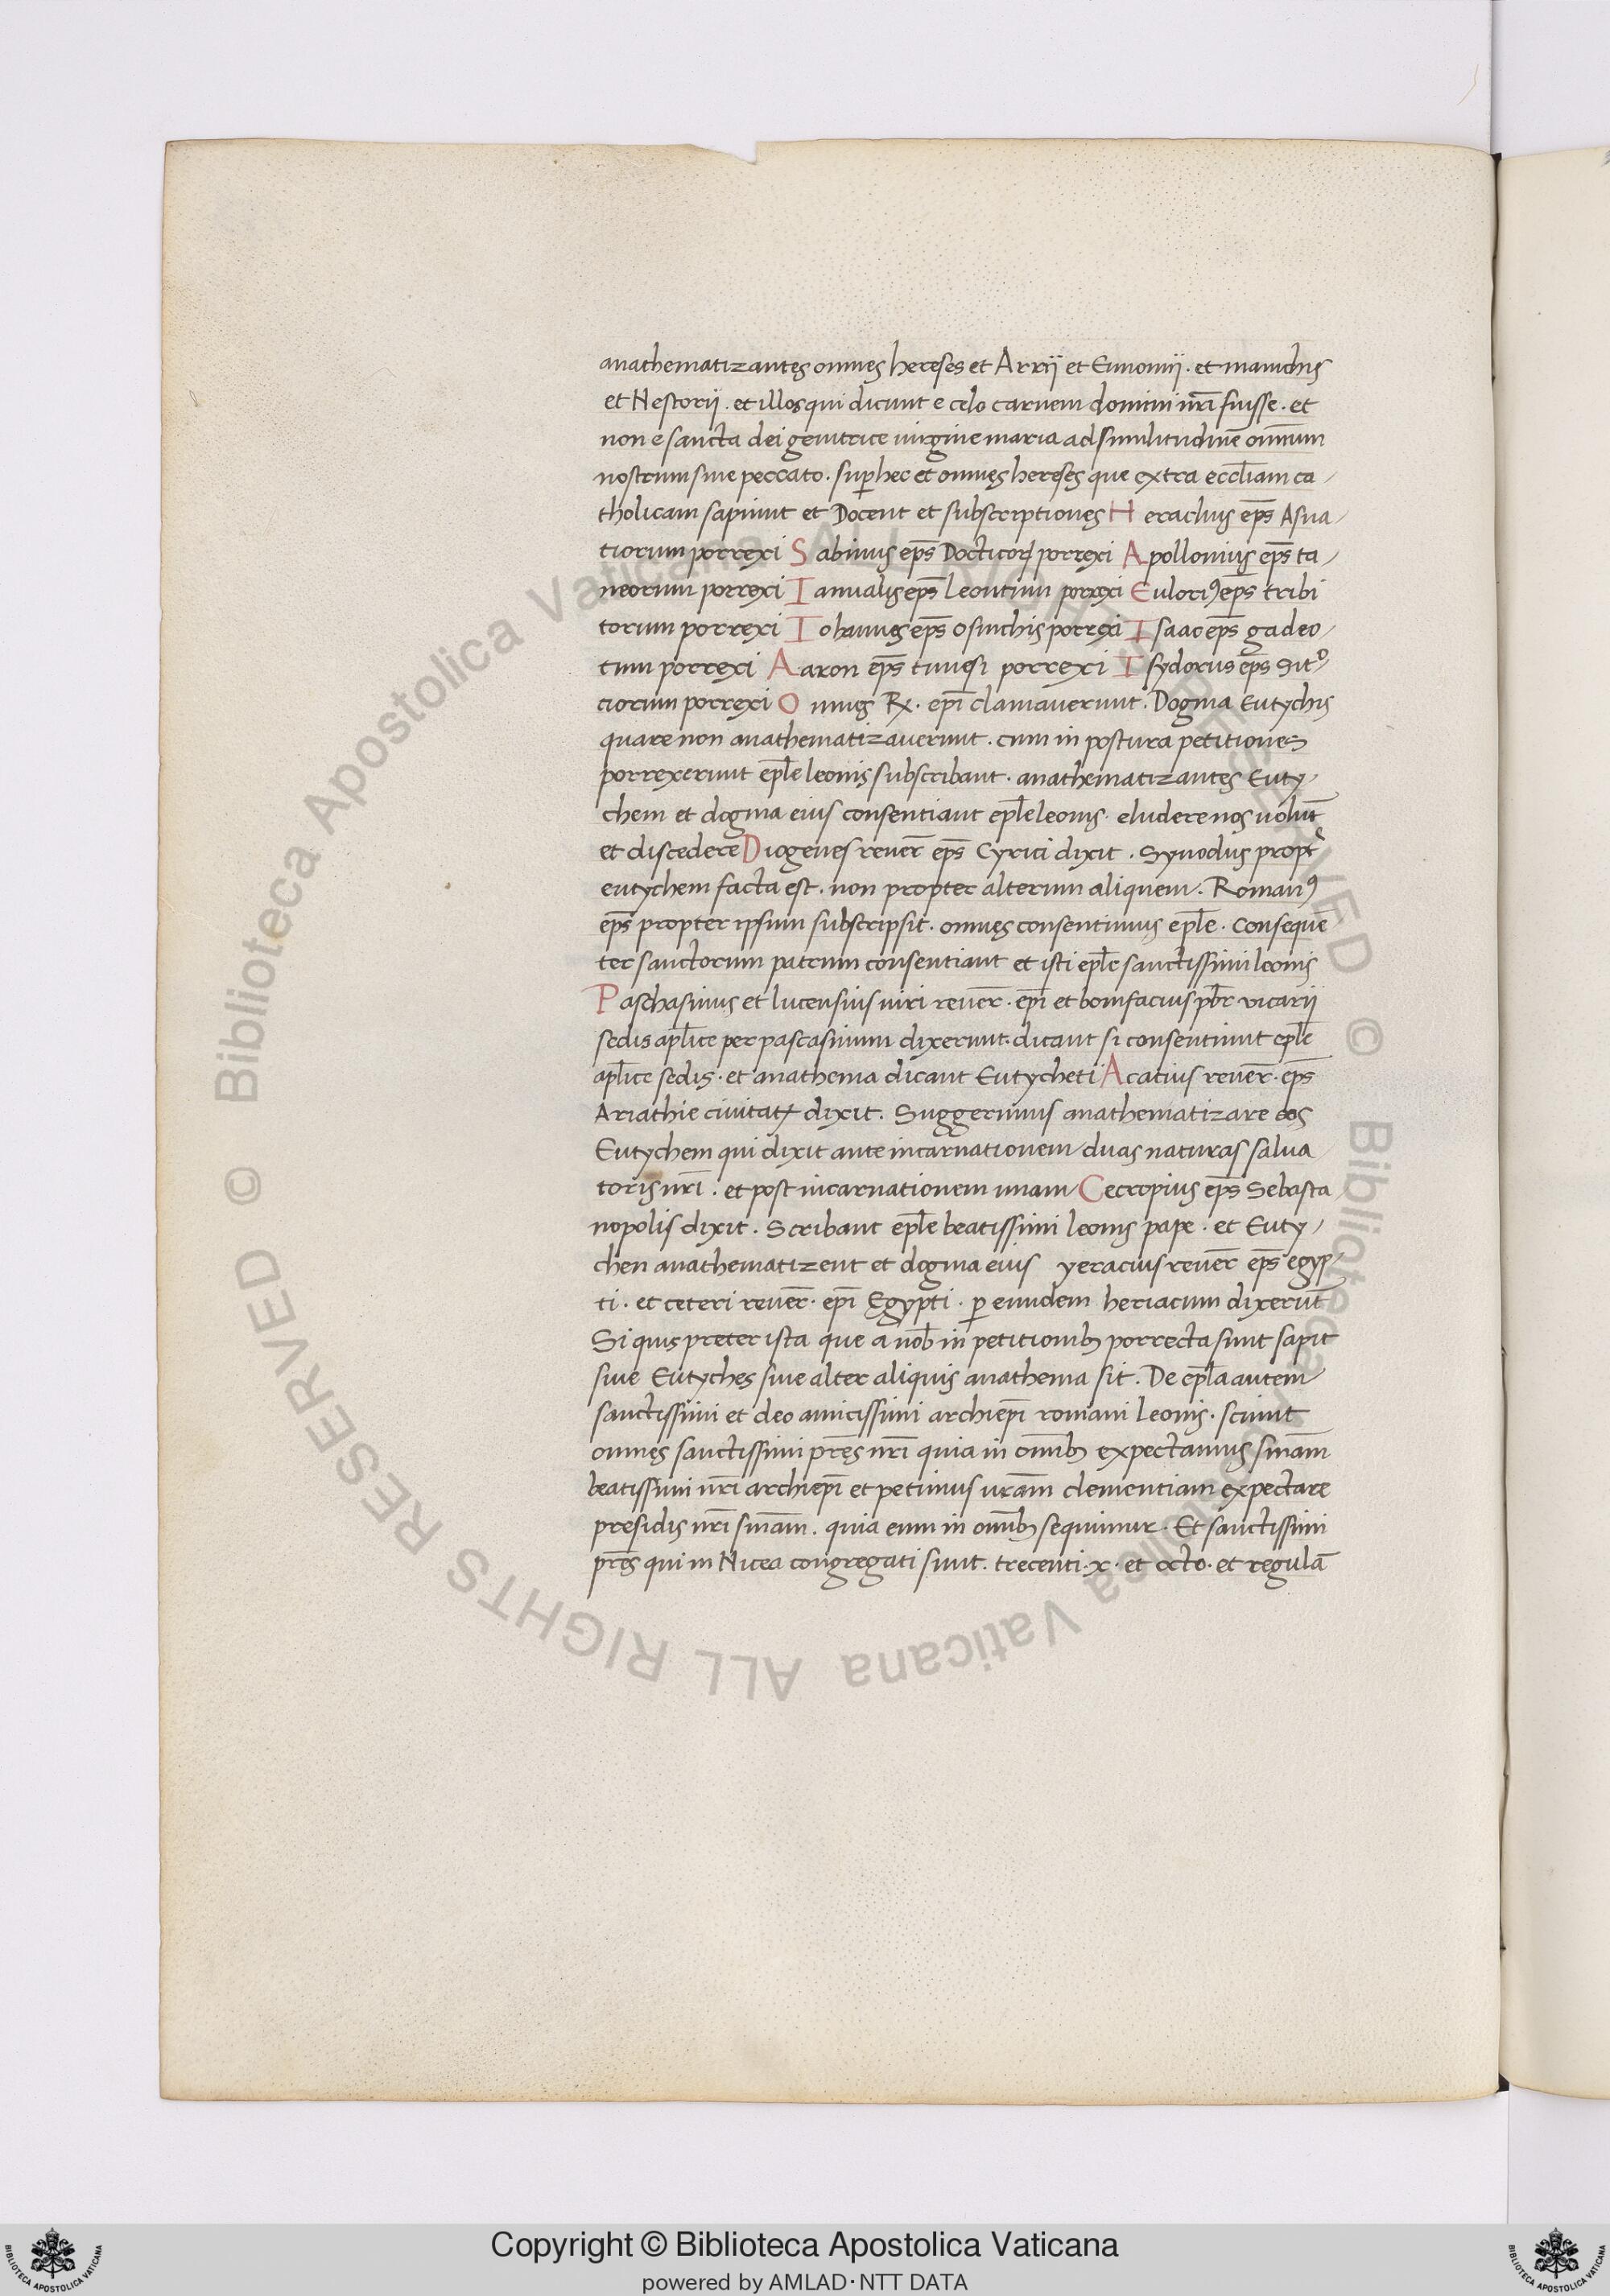 anathematizantes omnes hereses et Arrii et Eunomii · et manichis
et Nestorii · et illos qui dicunt e celo carnem domini nr̄i fuisse · et
non e sancta dei genitrice virgine maria ad similitudinē omnium
nostrum sine peccato · suꝑ hec et omnes hereses que extra eccl̄iam ca-
tholicam sapiunt et Docent et subscriptiones Heraclius ep̄s Asna-
tiorum porrexi Sabinus ep̄s Docticoꝝ porrexi Apollonius ep̄s ta
neorum porrexi Ianualis ep̄s leontini porrexi Euloriꝰ ep̄s tribi
torum porrexi Iohannes ep̄s osinchis porrexi Isaac ep̄s gadeo-
tum porrexi Aaron ep̄s tinesi porrexi Isydorus ep̄s
ciorum porrexi Omnes Rx· ep̄i clamaverunt · Dogma Eutychis
quare non anathematizaverunt · cum in postura petitiones
porrexerunt ep̄le leonis subscribant · anathematizantes Euty-
chem et dogma eius consentiant ep̄le leonis · eludere nos volūt
et discedere Diogenes reuer̄ ep̄s Cyrici dixit · Synodus propt̄
eutychem facta est · non propter alterum aliquem · Romanꝰ
ep̄s propter ipsum subscripsit · omnes consentimus ep̄le · Consequē
ter sanctorum patrum consentiant et isti ep̄le sanctissimi leonis
Paschasinus et lucensius viri reuer̄ · ep̄i et bonifacius pb̄r vicarii
sedis apl̄ice per pascasinum dixerunt · dicant si consentiunt ep̄le
apl̄ice sedis · et anathema dicant Eutycheti Acatius reuer̄ · ep̄s
Ariathie civitatꝭ dixit · Suggerimus anathematizare eos
Eutychem qui dixit ante incarnationem duas naturas salva
toris nr̄i · et post incarnationem unam Cecropius ep̄s Sebasta
nopolis dixit · Scribant ep̄le beatissimi leonis pape · et Euty-
chen anathematizent et dogma eius yeracius reuer̄ ep̄s egyp-
ti · et ceteri reuer̄ · ep̄i Egypti · ꝑ eundem heriacum dixerūt
Si quis preter ista que a nob̄ in petitionibꝫ porrecta sunt sapit
sive Eutyches sive alter aliquis anathema sit · De ep̄la autem
sanctissimi et deo amicissimi archiep̄i romani Leonis · sciunt
omnes sanctissimi pr̄es nr̄i quia in om̄ibꝫ expectamus sn̄iam
beatissimi nr̄i archiep̄i et petimus vr̄am clementiam expectare
presidis nr̄i sn̄iam · quia eum in om̄ibꝫ sequimur · Et sanctissimi
pr̄es qui in Nicea congregati sunt · trecenti · x · et octo · et regulā
Copyright © Biblioteca Apostolica Vaticana
powered by AMLAD·NTT DATA